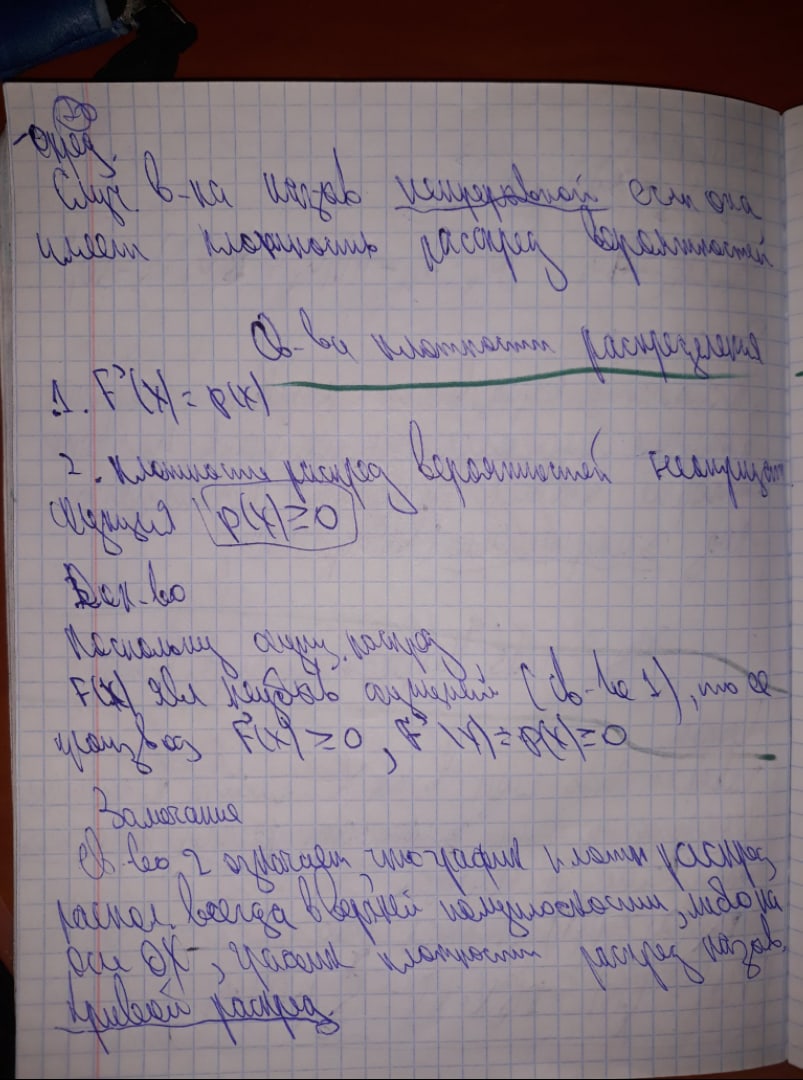 Опред.
Случ. в-на назыв непрерывной если она
имеет плотность распред вероятностей
Св-ва плотности распределения
1. F'(x) = p(x)
2. плотность распред вероятностей неотрицат.
функция p(x) ≥ 0
Док-во
Поскольку функц. распред
F(x) явл неубыв функцией (св-во 1), то ее
производ F'(x) ≥ 0, F'(x) = p(x) ≥ 0
Замечания
Св-во 2 означает, что график плотн распред
распол. всегда в верхней полуплоскости, либо на
оси OX, график плотности распред назыв.
кривой распред